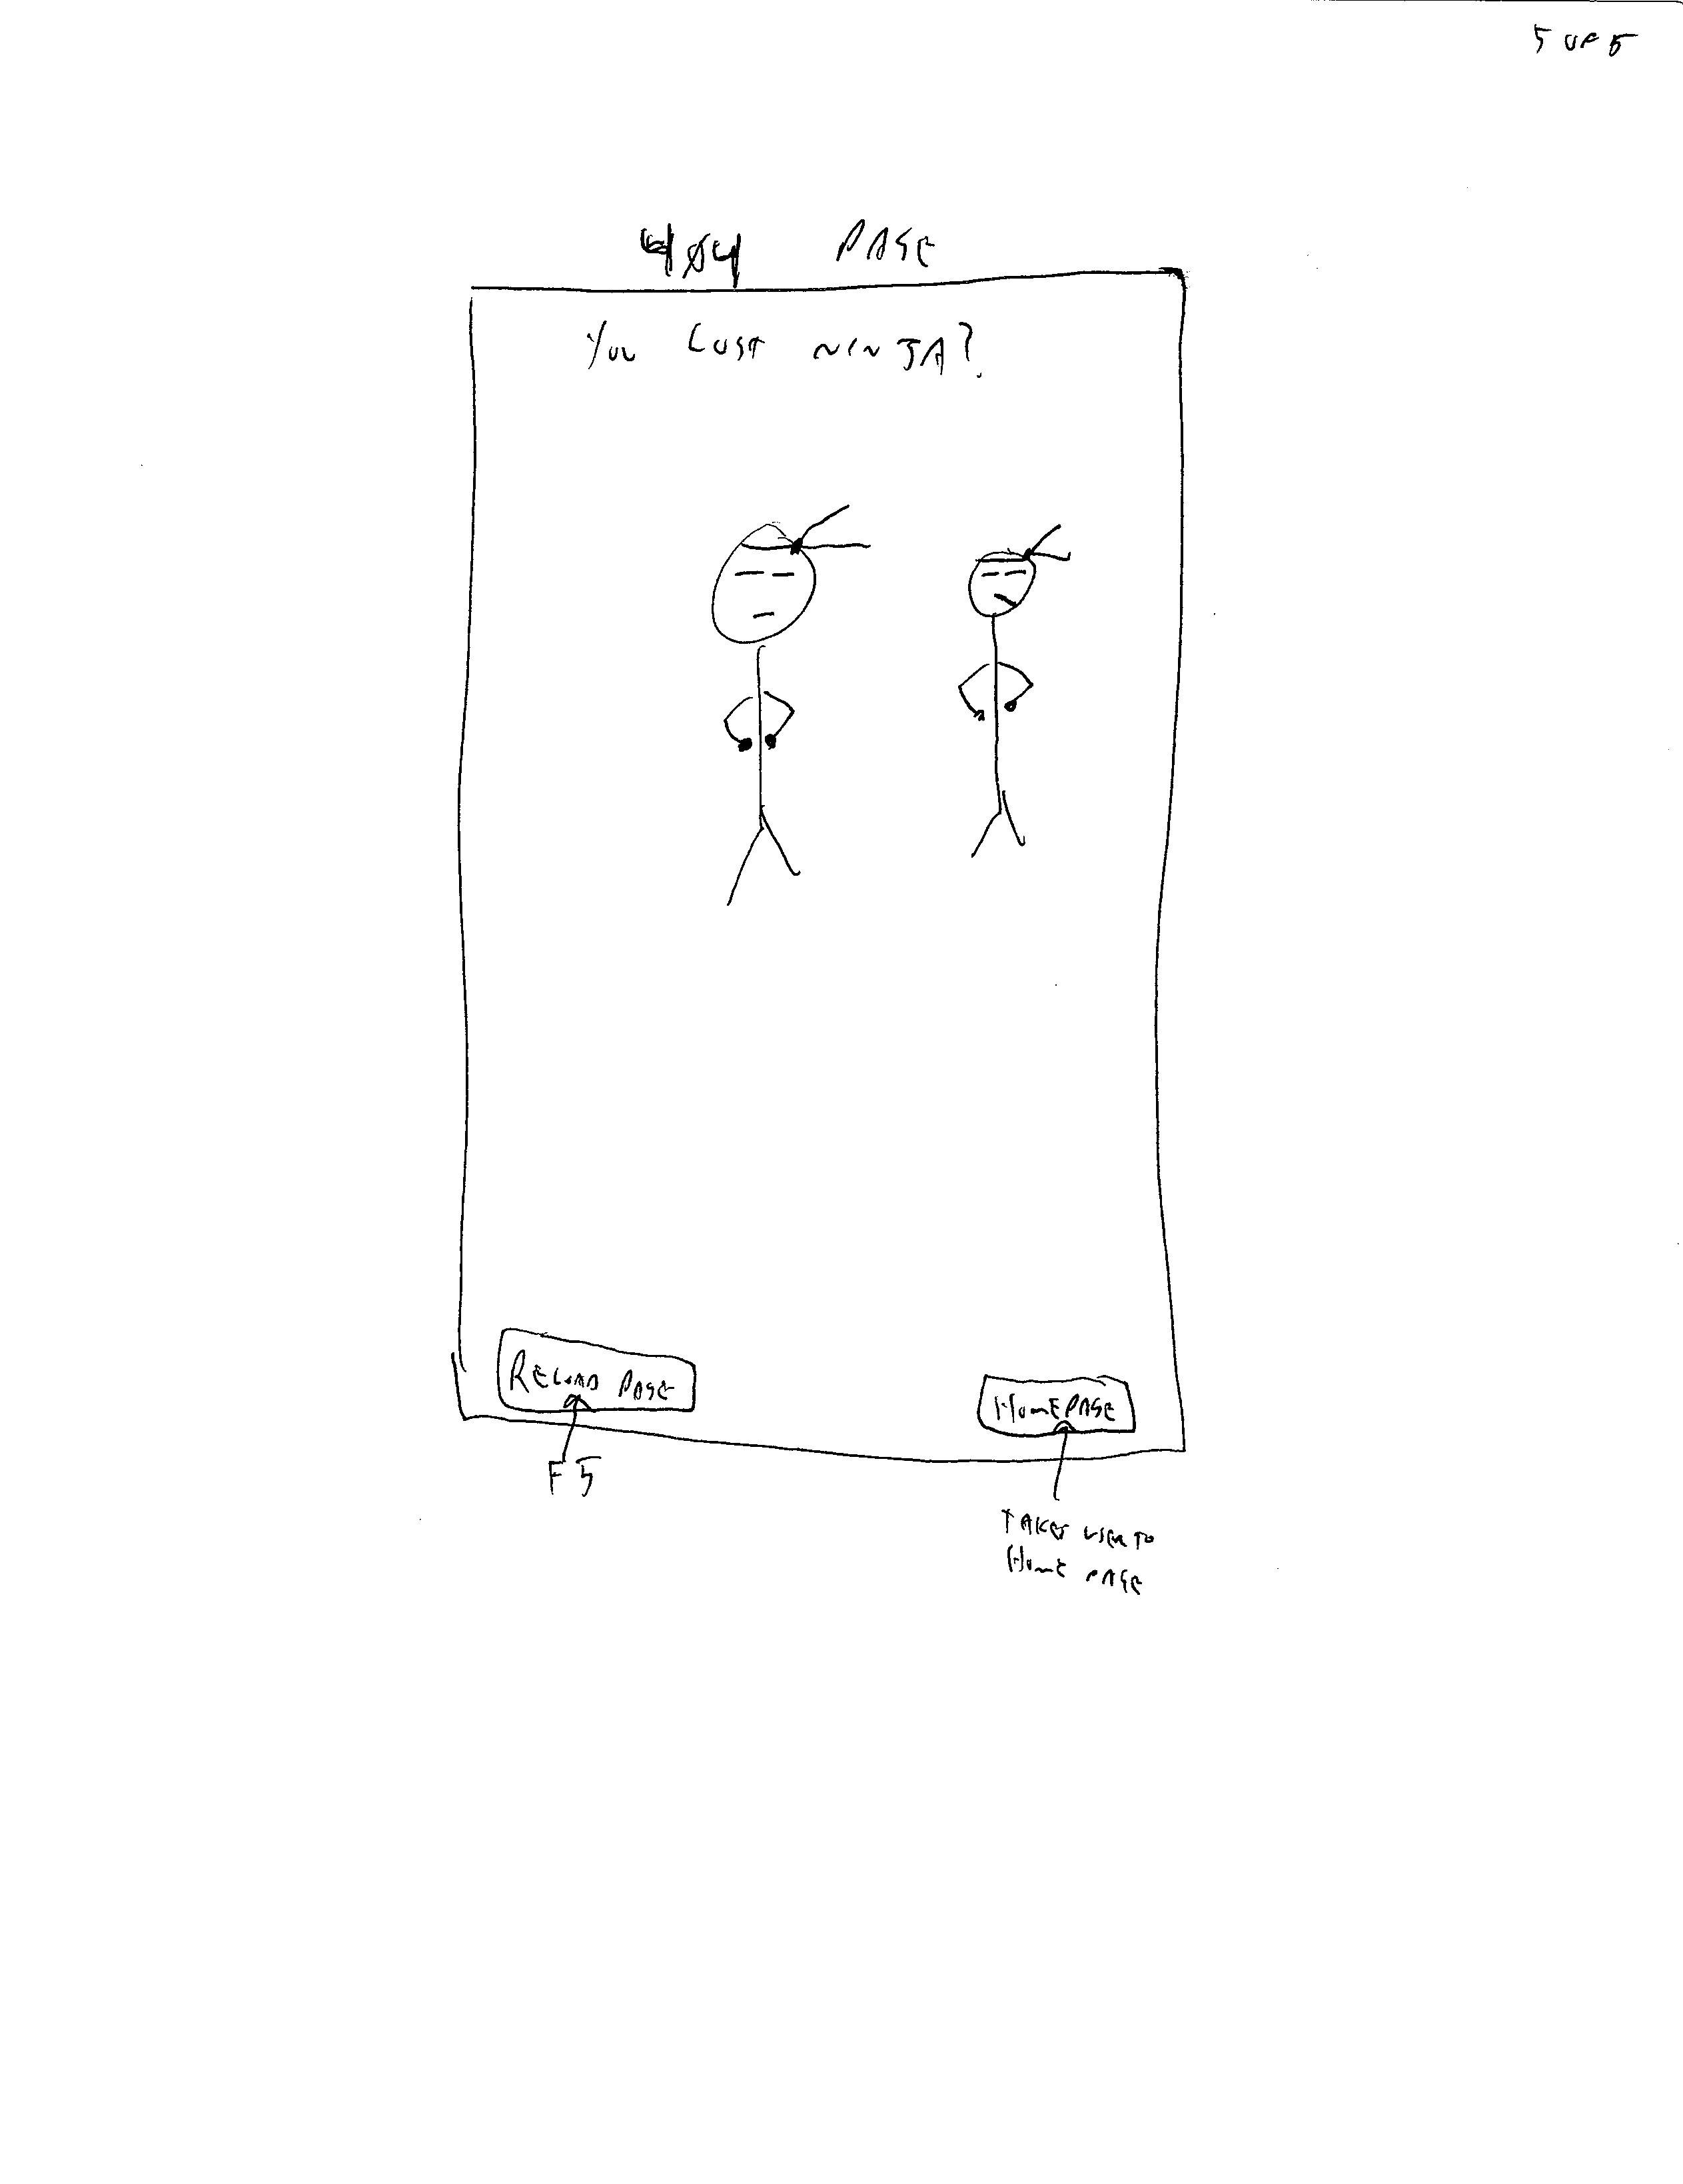 5 OF 5
404 PAGE
YOU LOST NINJA?
RELOAD PAGE
HOMEPAGE
F5
TAKES USER TO
HOME PAGE